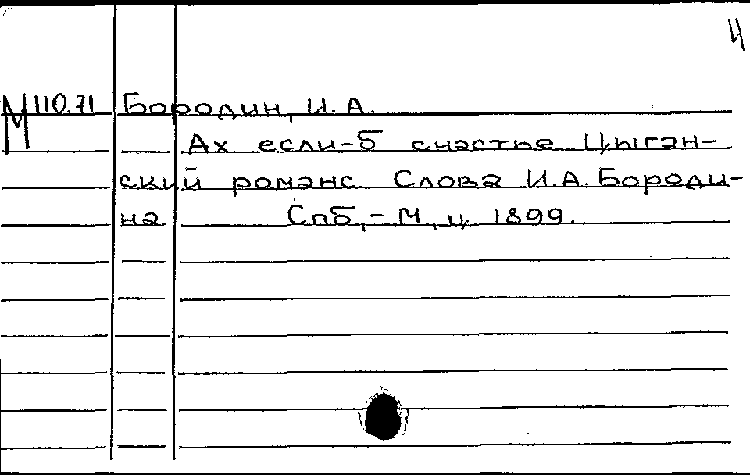 М 110.71 Бородин, И. А.
Ах если-б счастье Цыган-
ский романс. Слова И.А. Бороди-
на Спб,-М, ц. 1899.